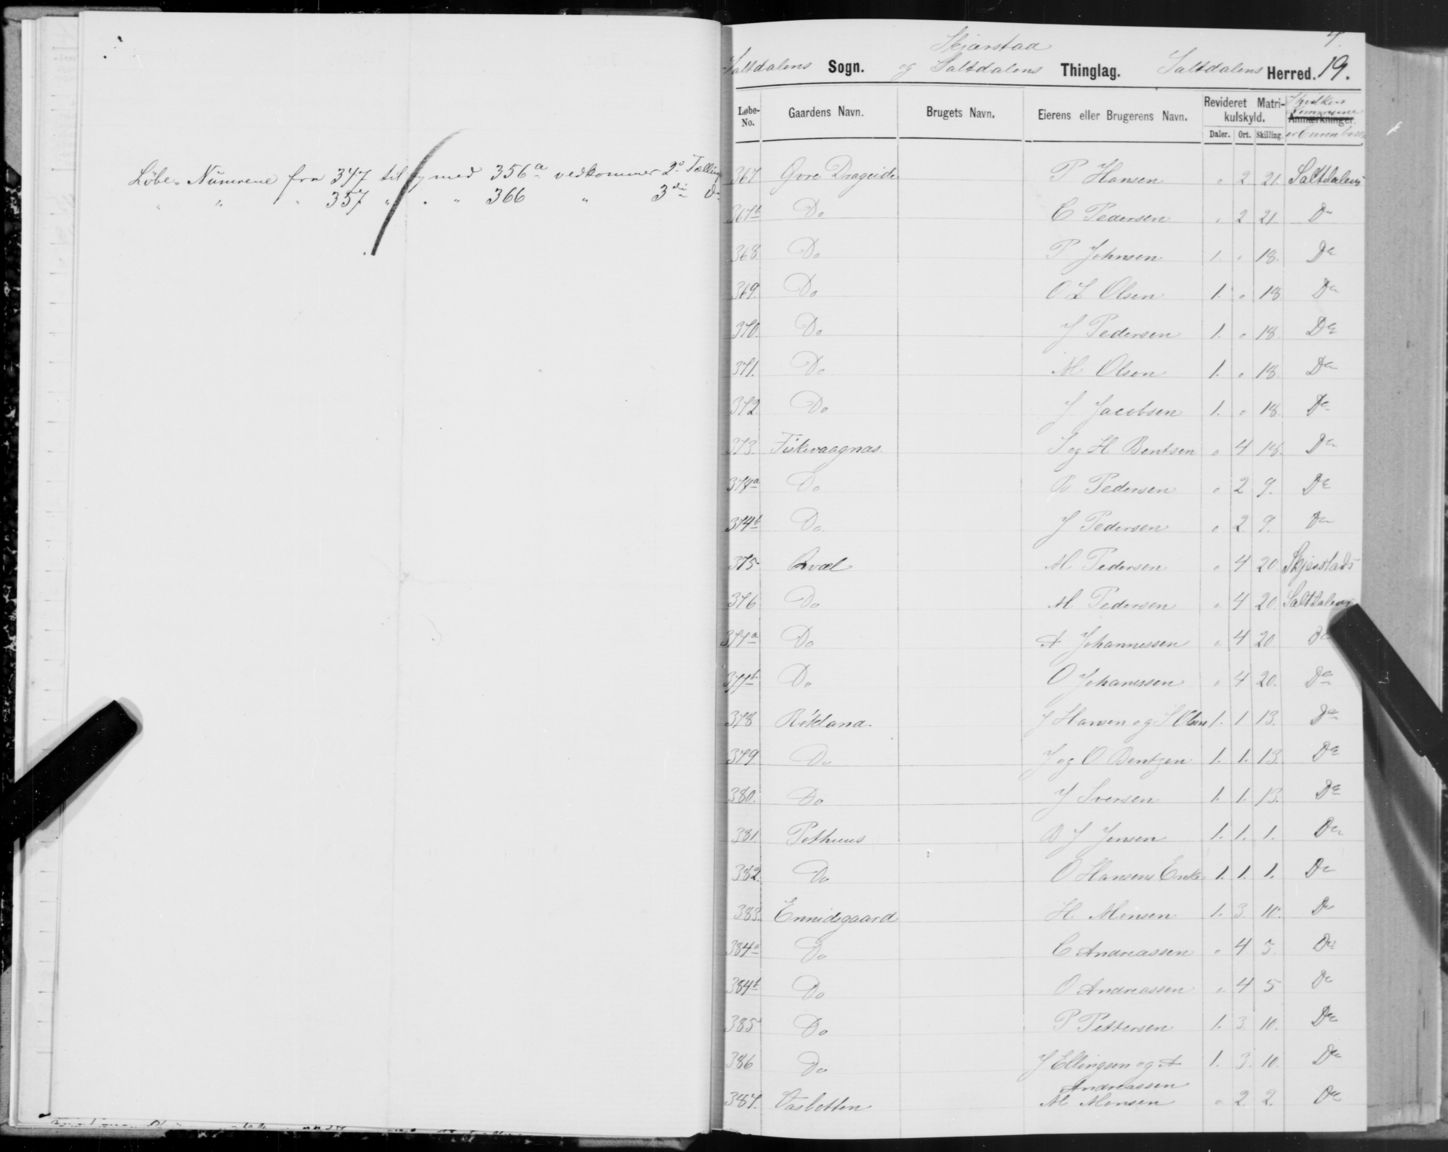 Løbe-Numrene fra 347 til og med 356a vedkommer 2d Tælling
" " " 357 " " " 366 " 3die Do
Skjærstad
Saltdalens Sogn. og Saltdalens Thinglag. Saltdalens Herred. 19.
Løbe-No. Gaardens Navn. Brugets Navn. Eierens eller Brugerens Navn. Revideret Matrikulskyld. Anmærkninger.
Daler. Ort. Skilling.
367 Øvre Drageide P Hansen " 2 21 Saltdalens
367b Do C Pedersen " 2 21 Do
368 Do P Johnsen 1. " 18. Do
369. Do O L Olsen 1. " 18 Do
370. Do J Pedersen 1. " 18. Do
371. Do M Olsen 1. " 18. Do
372 Do J Jacobsen 1. " 18 Do
373. Fiskevaagnæs J og H Bentsen " 4 18. Do
374a Do Pedersen " 2 9. Do
374b Do J Pedersen " 2 9. Do
375 Qval M Pedersen " 4 20 Skjerstads
376 Do M Pedersen " 4 20. Saltdalens
377a Do A Johannessen " 4 20 Do
377b Do O Johanessen " 4 20. Do
378 Rökland. J Hansen og J Olsen 1. 1 13. Do
379 Do J og O Bentzen 1. 1. 13. Do
380. Do J Iversen 1. 1. 13. Do
381. Pothuus J Jensen 1. 1. 1. Do
382. Do O Hansens Enke 1. 1. 1. Do
383. Evensgaard H Monsen 1. 3. 10. Do
384a Do C Andreassen " 4 5. Do
384b Do O Andreassen " 4 5 Do
385 Do P Pettersen 1. 3. 10. Do
386 Do J Ellingsen og A Andreassen 1. 3. 10. Do
387. Vasbotten M Monsen " 2 2. Do